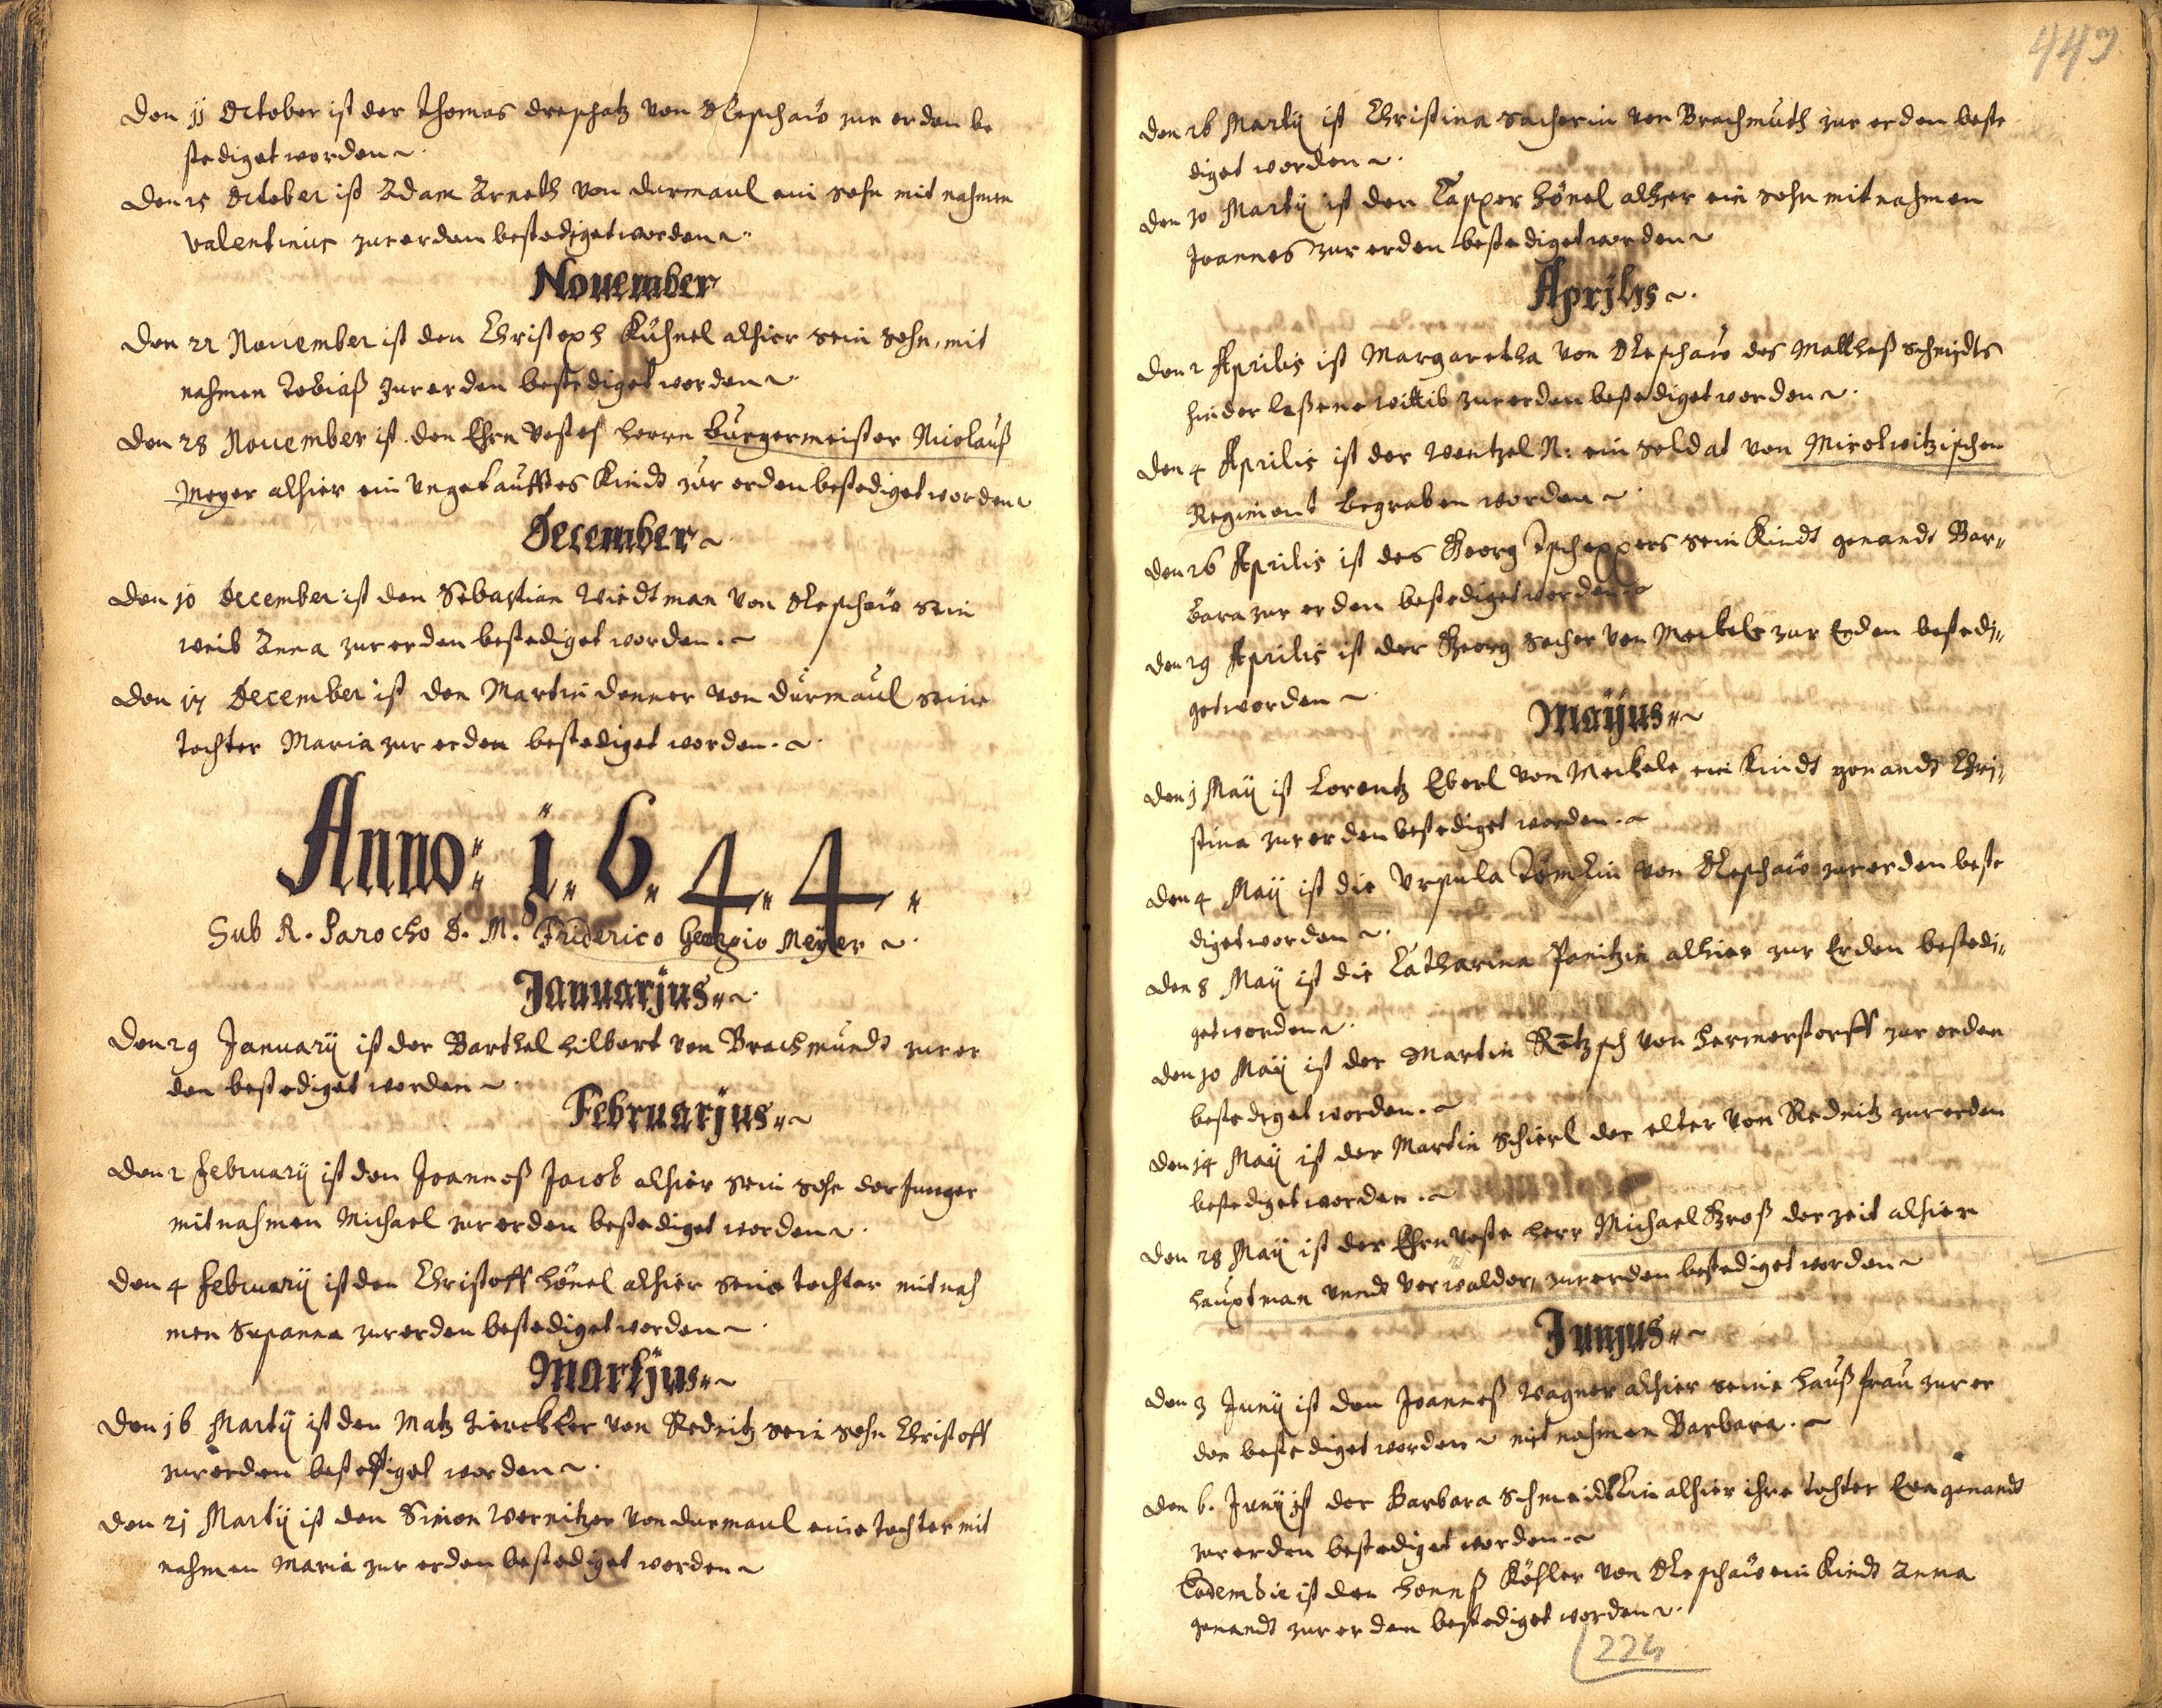 Den 11 October ist der Thomas dreschatz von Oleschaw zur erden be
stediget worden
Den 15 October ist Adam Arneth von durmaul ein sohn mit nahmen
Valentinus zur erden bestediget worden
Nouember
Den 22 Nouember ist den Christoph Kuhnel alhier sein sohn, mit
nahmen Tobiaß zur erden bestediget worden
Den 28 Nouember ist den Ehrn Vestes herrn burgermeister Nicolauß
Meyer alhier ein Ungetaufftes Kindt zur erden bestediget worden
December
Den 10 December ist den Sebastian Wiedtman von Oleschaw sein
weib Anna zur erden bestediget worden.
Den 17 December ist den Martin denner von durmaul seine
tochter Maria zur erden bestediget worden.
Anno: 1.6.4.4.
Sub R. Parocho D. M. Friderico Georgio Meyer
Januarjus
Den 29 Januarij ist der Barthel hilbert von Brachmundt zur er
den bestediget worden
Februarjus
Den 2 februarij ist den Joanneß Jacob alhier sein sohn der Junger
mit nahmen Michael zur erden bestediget worden
Den 4 februarij ist den Christoff hönel alhier seine tochter mit nah
men Susanna zur erden bestediget worden
Martjus
Den 16 Martij ist den Matz Zierckler von Rednitz sein sohn Christoff
zur erden bestettiget worden
Den 21 Martij ist den Simon Wernitzer von durmaul eine tochter mit
nahmen Maria zur erden bestediget worden
443
Den 26 Martij ist Christina Sacherin von Brachmuth zur erden beste
diget worden
Den 30 Martij ist den Casper hönel alhier ein sohn mit nahmen
Joannes zur erden bestediget worden
Aprjljs
Den 2 Aprilis ist Margaretha von Oleschaw des Mattheß Schmidts
hinder laßene wittib zur erden bestediget worden
Den 4 Aprilis ist der Wentzel N: ein Soldat von Mirolwitzischen
Regiment begraben worden
Den 26 Aprilis ist des Georg Tscheppers sein Kindt genandt Bar„
bara zur erden bestediget worden
Den 29 Aprilis ist der Georg Sacher von Meckels zur Erden bestedi„
get worden
Maijus
Den 1 Maij ist Lorentz Eberl von Meckels ein Kindt genandt Chri„
stina zur erden bestediget worden.
Den 4 Maij ist die Ursula von Oleschaw zur erden beste
diget worden
Den 8 Maij ist die Catharina Panitzin alhier zur Erden bestedi„
get worden
Den 10 Maij ist der Martin von hermerstorff zur erden
bestediget worden.
Den 14 Maij ist der Martin Schierl der elter von Rednitz zur erden
bestediget worden.
Den 28 Maij ist der Ehrnveste herr Michael Groß der zeit alhier
hauptman unndt verwalder, zur erden bestediget worden
Junjus
Den 3 Junij ist den Joanneß Wagner alhier seine haußfrau zur er
den bestediget worden mit nahmen Barbara.
Den 6. Junij ist der Barbara Schmeidtlin alhier ihre tochter Eva genandt
zur erden bestediget worden
Eodem die ist den hannß Köhler von Oleschaw ein Kindt Anna
genandt zur erden bestediget worden
224